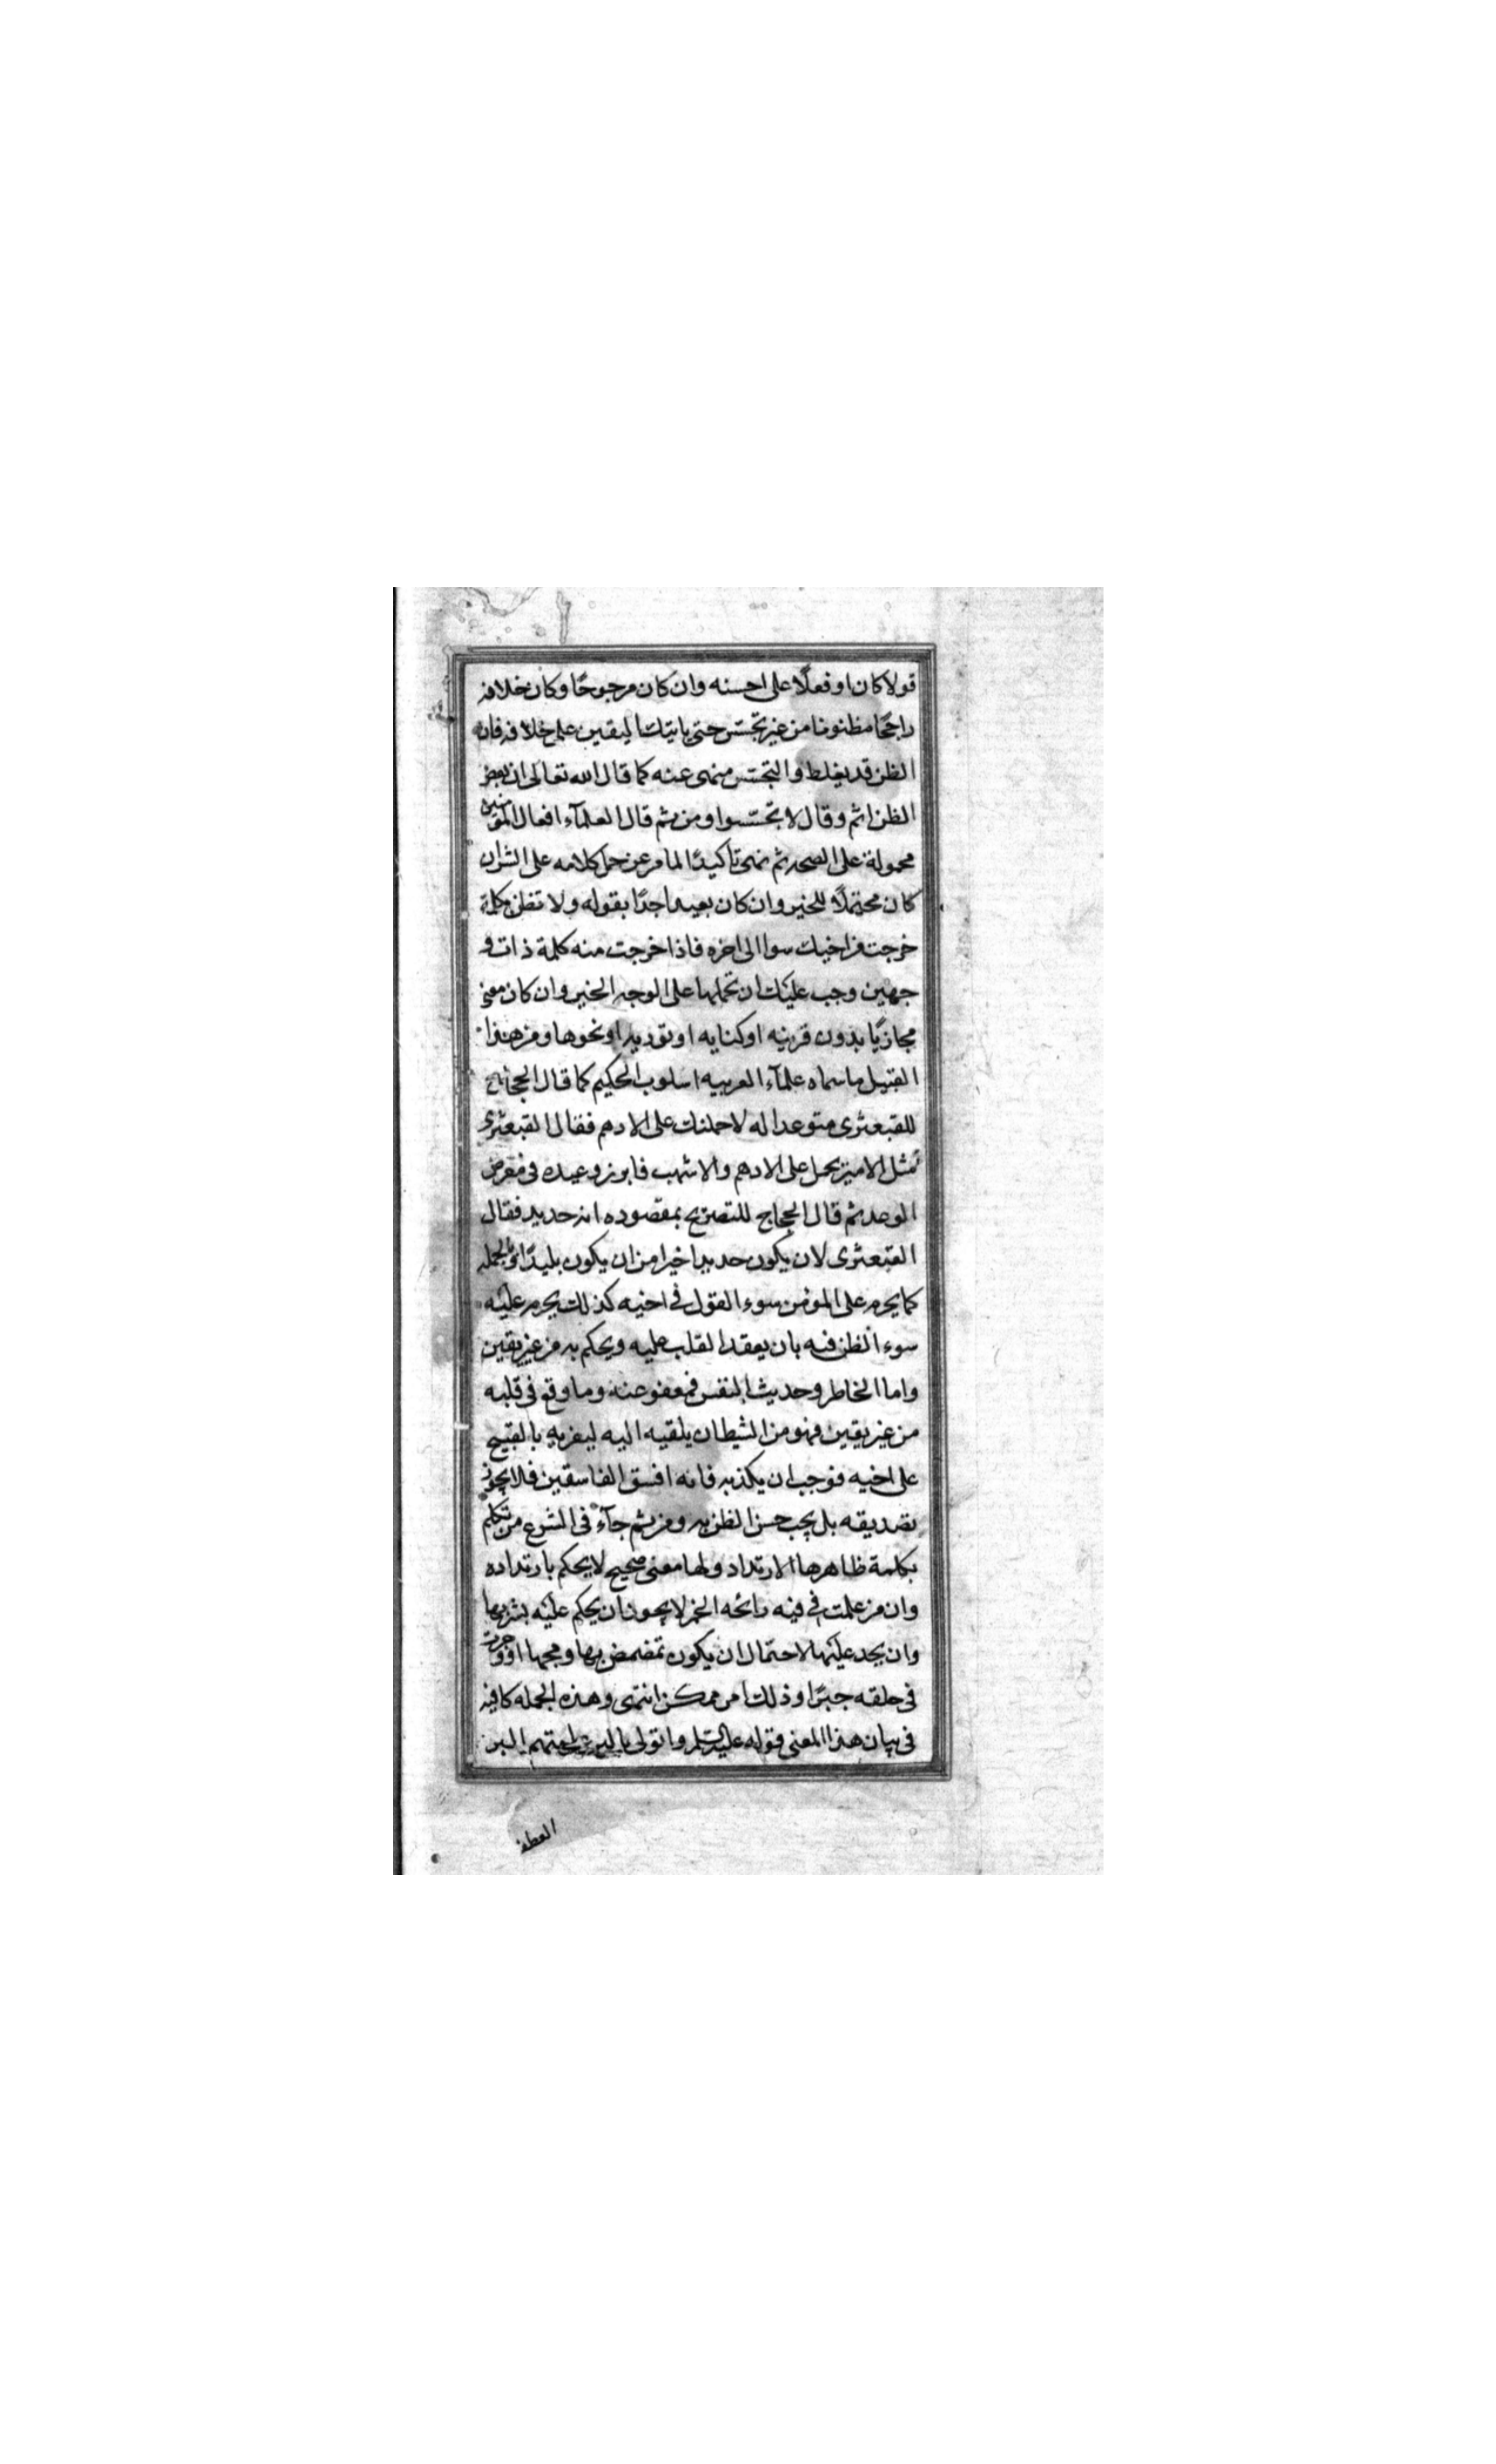 قولا كان او فعلًا على احسنه وان كان مرجوحًا وكان خلافه
راجحًا مظنونا من غير تجسّس حتى ياتيك اليقين على خلافه فان
الظن قد يغلط والتجسّس منهى عنه كما قال الله تعالى ان بعض
الظن اثم وقال لا تجسّسوا ومن ثم قال العلمآء افعال المومنين
محمولة على الصحه ثم نهى تاكيدًا لما مر عن حمل كلامه على الشر ان
كان محتملًا للخير وان كان بعيدا جدًا بقوله ولا تظن بكلمة
خرجت من اخيك سوا الى اخره فاذا خرجت منه كلمة ذات و
جهين وجب عليك ان تحملها على الوجه الخير وان كان معنى
مجازيًا بدون قرينه او كنايه او توريه او نحوها ومن هذا
القبيل ما سماه علمآء العربيه اسلوب الحكيم كما قال الحجاج
للقبعثرى متوعدا له لاحملنك على الادهم فقال القبعثرى
مثل الامير يحمل على الادهم والاشهب فابرز وعيده فى معرض
الوعد ثم قال الحجاج للتصريح بمقصوده انه حديد فقال
القبعثرى لان يكون حديدا خيرا من ان يكون بليدًا وبالجمله
كما يحرم على المومن سوء القول فى اخيه كذلك يحرم عليه
سوء الظن فيه بان يعقد القلب عليه ويحكم به من غير يقين
واما الخاطر وحديث النفس فمعفو عنه وما وقع فى قلبه
من غير يقين فهو من الشيطان يلقيه اليه ليغريه بالقبيح
على اخيه فوجب ان يكذبه فانه افسق الفاسقين فلا يجوز
تصديقه بل يجب حسن الظن به ومن ثم جآء فى الشرع من تكلم
بكلمة ظاهرها الارتداد ولها معنى صحيح لا يحكم بارتداده
وان من علمت فى فيه رائحه الخمر لا يجوز ان يحكم عليه بشربها
وان يحد عليها لاحتمال ان يكون تمضمض بها ومجها او وجرت
فى حلقه جبرًا وذلك امر ممكن انتهى وهذه الجمله كافيه
فى بيان هذا المعنى قوله عليه السلم واتولى بالبر عامتهم البر
العطف